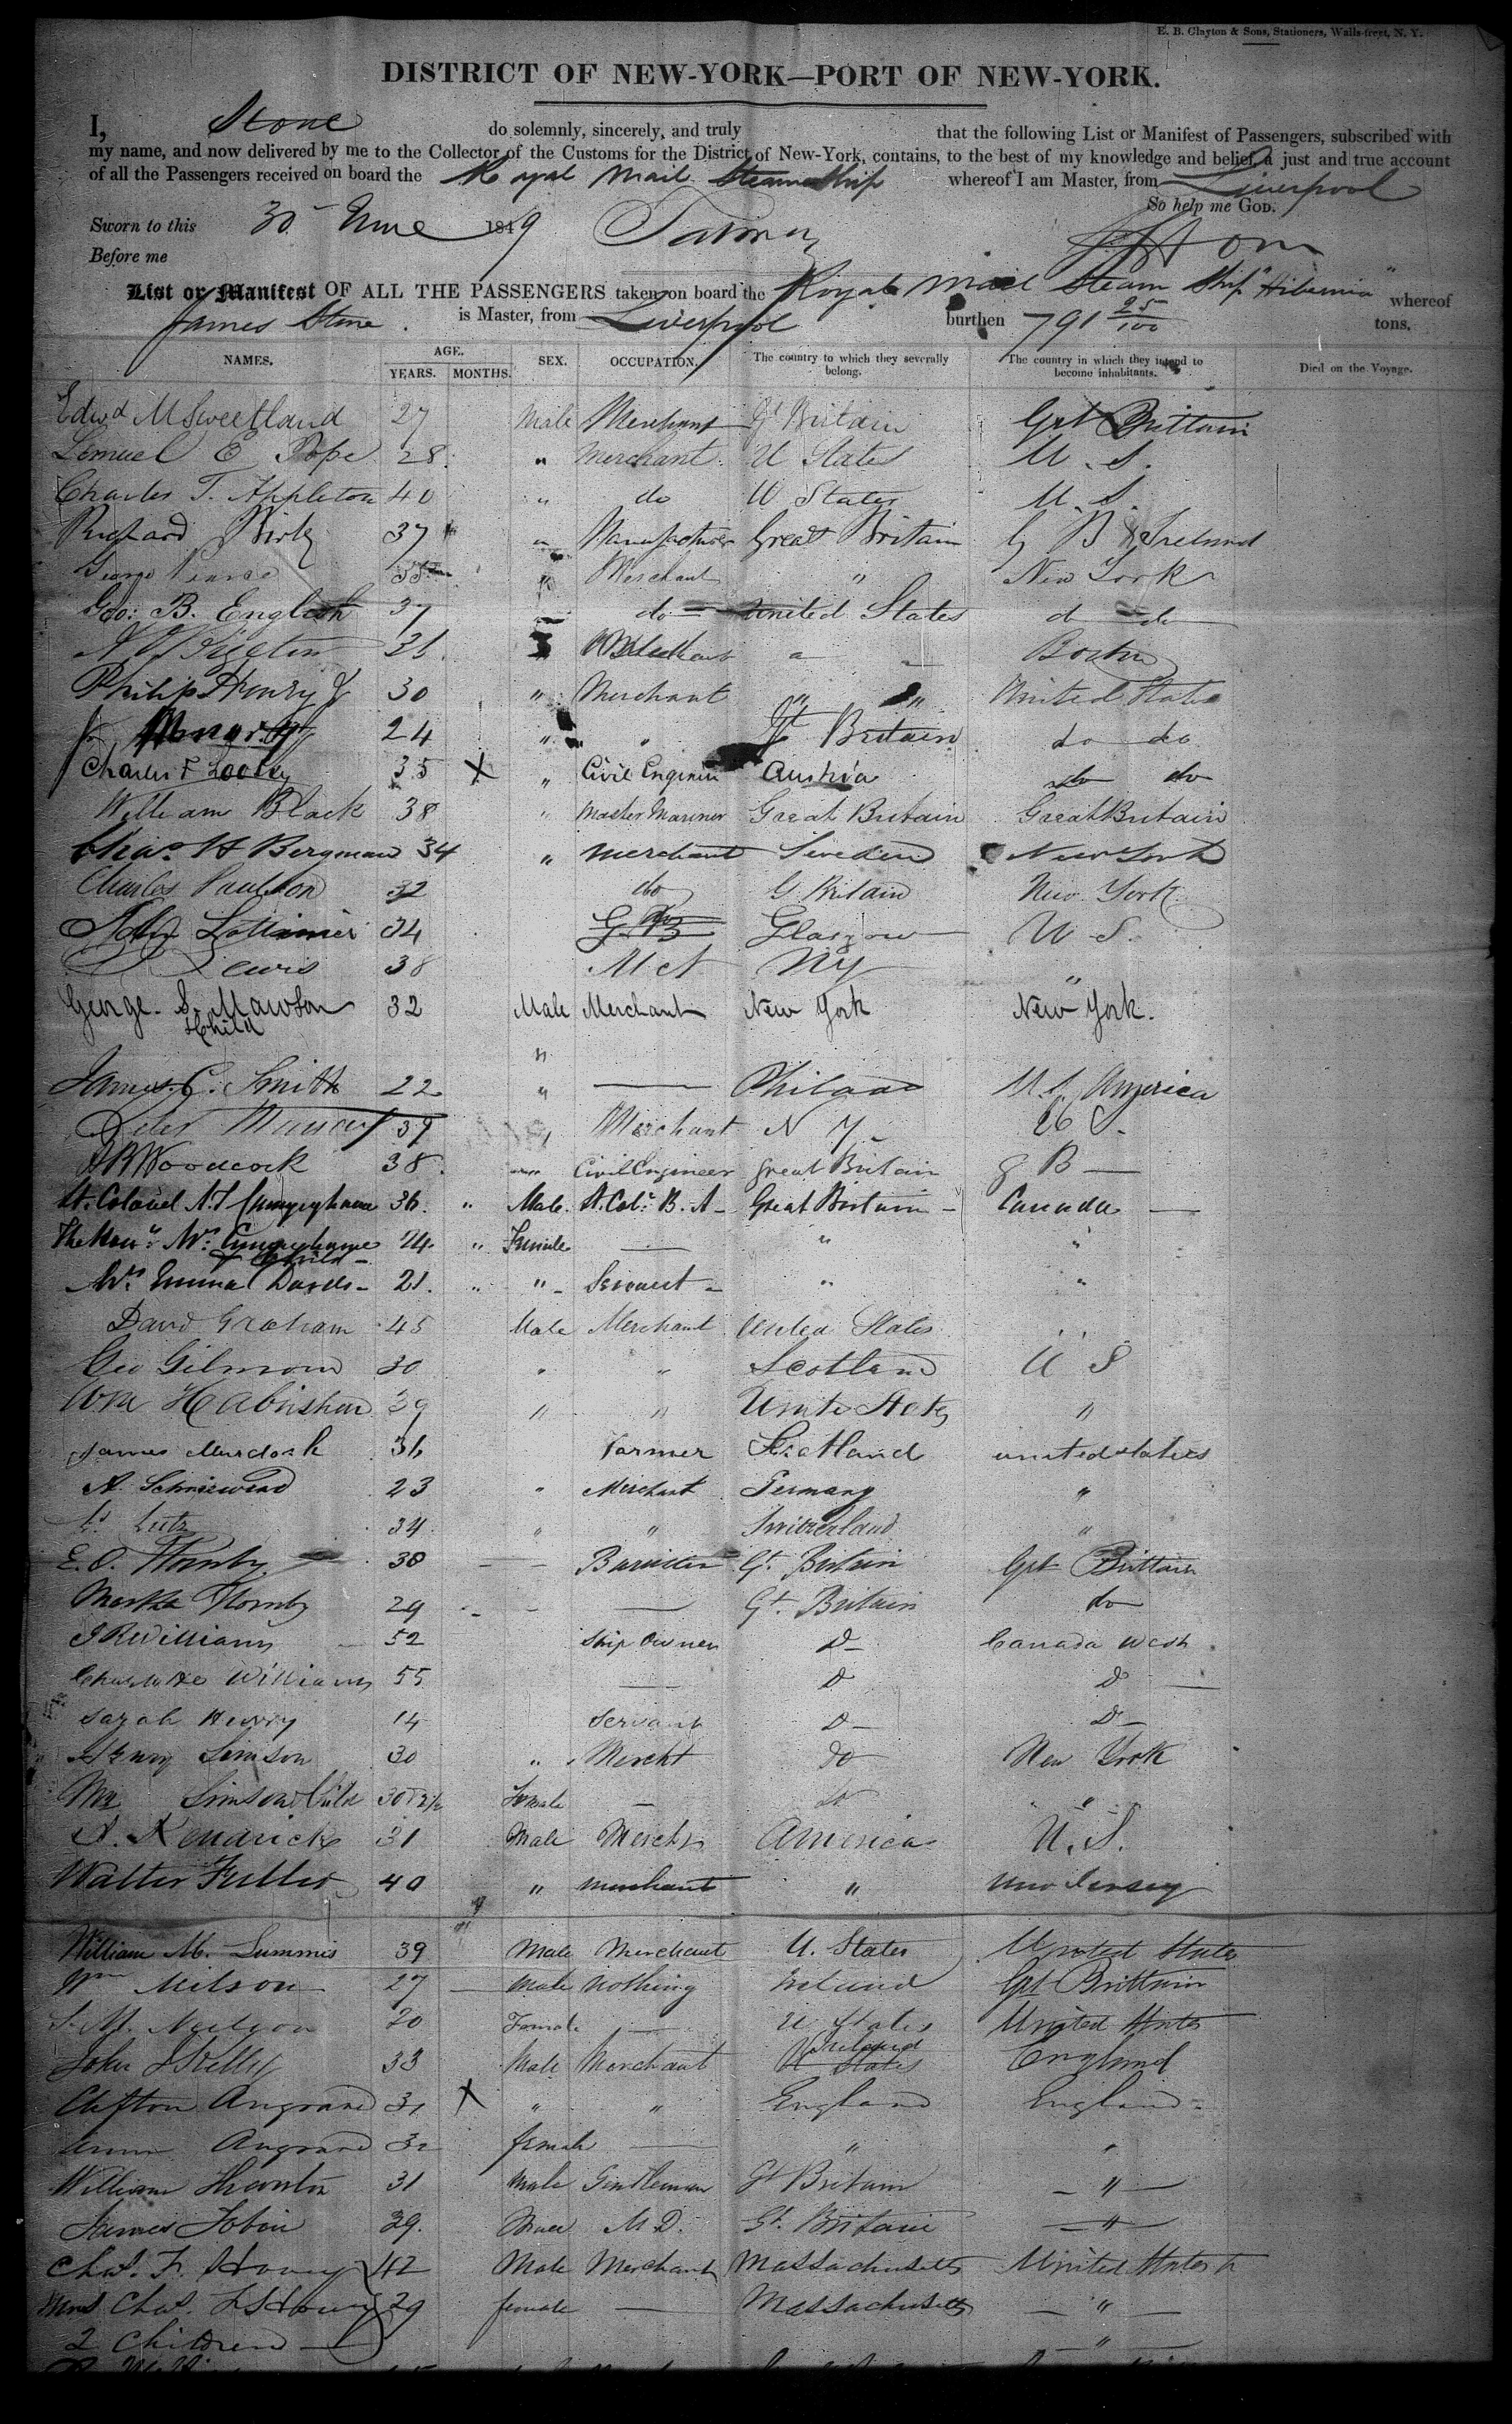 E. B. Clayton & Sons, Stationers, Wall-street, N. Y.
DISTRICT OF NEW-YORK—PORT OF NEW-YORK.
I, Stone do solemnly, sincerely, and truly that the following List or Manifest of Passengers, subscribed with
my name, and now delivered by me to the Collector of the Customs for the District of New-York, contains, to the best of my knowledge and belief, a just and true account
of all the Passengers received on board the Royal Mail Steam Ship whereof I am Master, from Liverpool
So help me GOD.
Sworn to this 30 June 1849
Before me
List or Manifest OF ALL THE PASSENGERS taken on board the Royal Mail Steam Ship "Hibernia" whereof
James Stone is Master, from Liverpool burthen 791 25/100 tons.
NAMES. AGE. SEX. OCCUPATION. The country to which they severally belong. The country in which they intend to become inhabitants. Died on the Voyage.
YEARS. MONTHS.
Edwd M Sweetland 27 Male Merchant Gt Britain Grt Brittain
Lemuel E Pope 28 " Merchant U States U. S.
Charles T. Appleton 40 " do U States U. S.
Richard 37 " Manufacturer Great Britain G B & Ireland
George Merchant " New York
Geo: B. English 37 do United States do do
Boston
Philip Henry Jr 30 " Merchant " " United States
24 " " Gt Britain do do
Charles F 35 X " Civil Engineer Austria do do
William Black 38 " Master Mariner Great Britain Great Britain
Chas H Bergman 34 " Merchant Sweden New York
Charles Paulson 32 do G Britain New York
34 Glasgow U S.
Lewis 38 Mct NY "
George S. Mawson 32 Male Merchant New York New York.
& Child
"
James C. Smith 22 " — Philada U. S. America
Peter 39 " Merchant N Y U S.
Woodcock 38 Civil Engineer Great Britain G B —
Lt. Colonel A. T. Cunynghame 36 " Male. Lt. Col: B. A — Great Britain — Canada —
The Honble Mrs Cunynghame 24 " Female — " "
& Child —
Mrs Emma Davis — 21. " " Servant — " "
David Graham 45 Male Merchant United States "
Geo Gilmour 30 " " Scotland U S
Wm H 39 " " United States "
James Murdock 36 Farmer Scotland united states
A. Schniewind 23 " Merchant Germany "
Lutz 34 " " Switzerland "
E. O. Hornby 38 — — Barrister Gt. Britain Grt Brittain
Martha Hornby 29 — — Gt. Britain do
J R Williams 52 Ship Owner D — Canada West
Charlotte Williams 55 — D D —
Sarah Henry 14 Servant D — D —
Henry Simson 30 " Mercht do New York
Mrs Simson & Child Female — do "
A. Kendrick 31 Male Mercht America U. S.
Walter Fuller 40 " merchant " New Jersey
William M. Summis 39 Male Merchant U. States United States
Wm Nilson 27 Male Nothing Ireland Grt Brittain
20 Female — U States United States
John Kelly 33 Male Merchant Ireland England
Clifton Angrave 31 X " " England England
Angrave 32 female — " "
William 31 Male Gentleman Gt Britain — " —
James Tobin 39. M. D. Gt. Britain — " —
Chas. F. Hovey 42 Male Merchant Massachusetts United States
Mrs Chas. F Hovey 29 female — Massachusetts — " —
2 Children — — " —